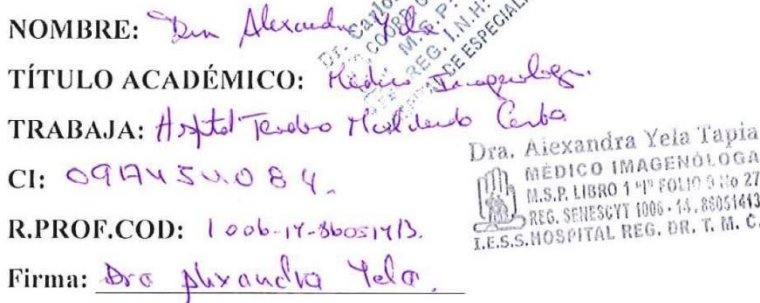 Dr. Carlos
COORD
M.S.P.
REG. I.N.H.
DE ESPECIAL
NOMBRE: Dra Alexandra Yela
TÍTULO ACADÉMICO: Médico Imagenologa.
TRABAJA: Hospital Teodoro Maldonado Carbo
CI:
R.PROF.COD: 1006-14-86051413.
Firma: Dra Alexandra Yela.
Dra. Alexandra Yela Tapia
MÉDICO IMAGENÓLOGA
M.S.P. LIBRO 1 "I" FOLIO 9 No 27
REG. SENESCYT 1006 - 14 - 86051413
I.E.S.S. HOSPITAL REG. DR. T. M. C.